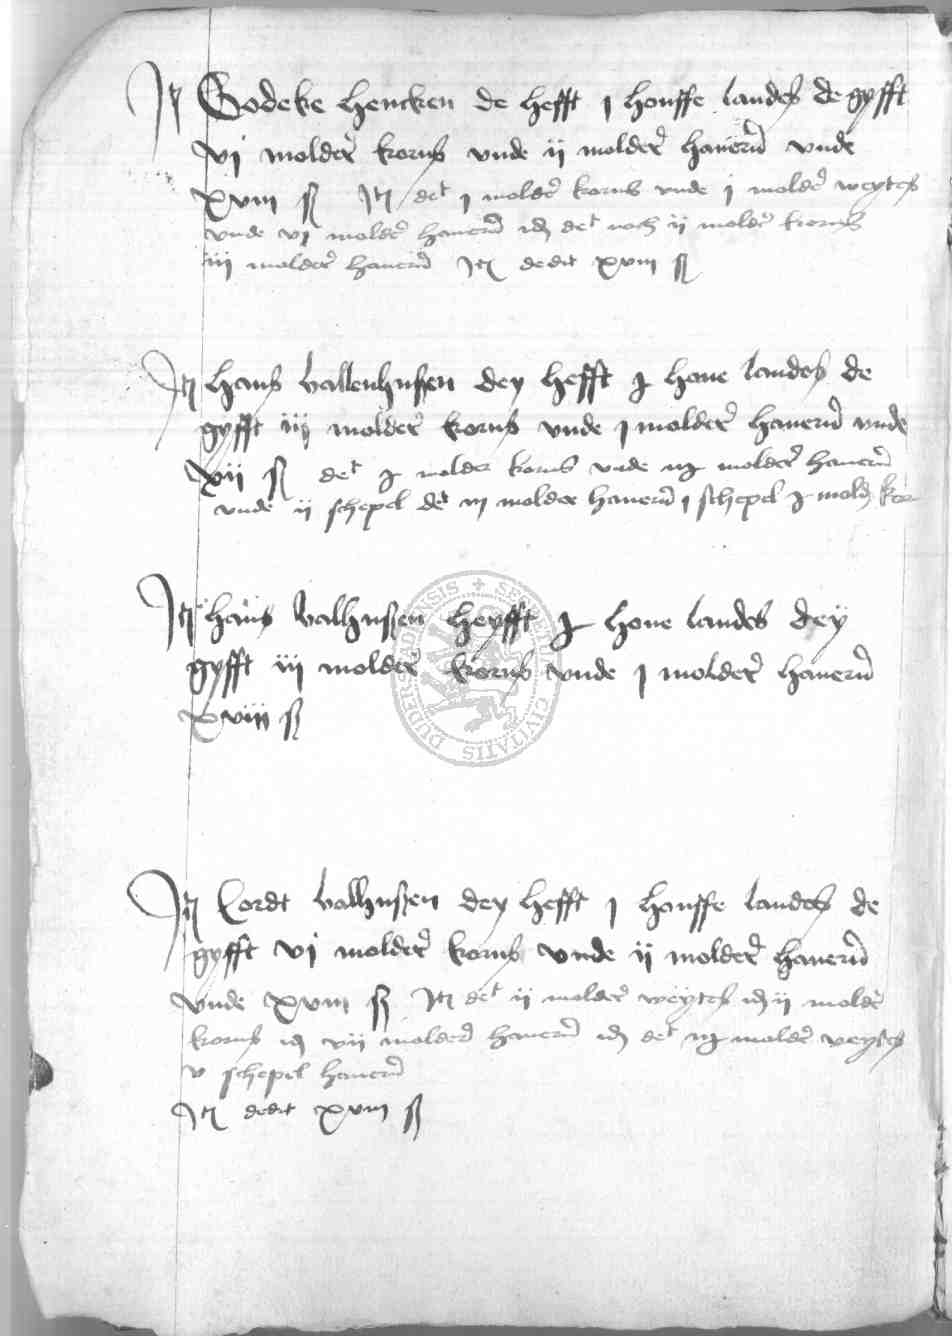 Itm Godeke Hencken de hefft j houffe landes de gyfft
vj molder korns vnde ij molder hauern vnde
xviij ß Itm det j molder korns vnde j molder weytes
vnde vj molder hauern id det noch ij molder korns
iij molder hauern Itm dedit xviij ß
Itm Hans Vallenhusen dey hefft j houe landes de
gyfft iij molder korns vnde j molder hauern vnde
xij ß det j molder korns vnde molder hauern
vnde ij schepel det iij molder hauern j schepel j mold korn
Itm Hans Valhusen heyfft j houe landes dey
gyfft iij molder korns vnde j molder hauern
xviij ß
Itm Cordt Valhusen dey hefft j houffe landes de
gyfft vj molder korns vnde ij molder hauern
vnde xviij ß Itm det ij molder weytes id ij molder
korns id vij molder hauern id det molder weytes
v schepel hauern
Itm dedit xviij ß
SECRETUM CIVITATIS DUDERSTADENSIS